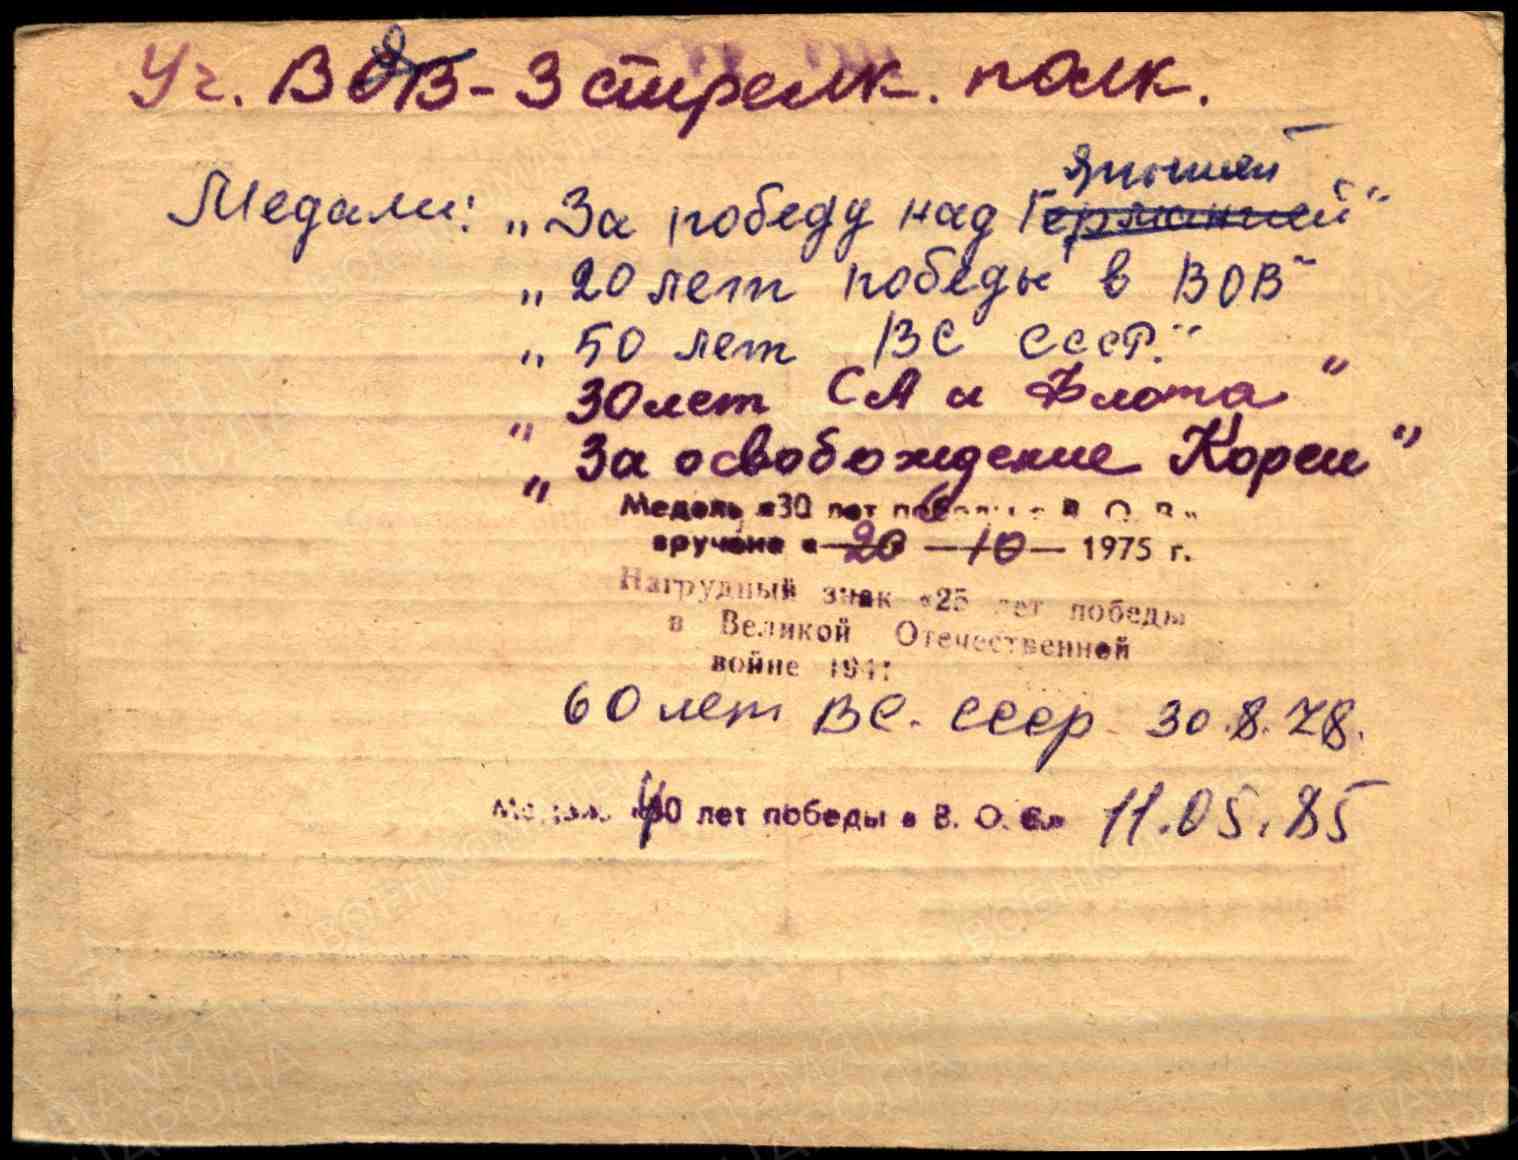 Уч. ВОВ - 3 стрелк. полк.
Японией
Медали: „За победу над Германией"
„20 лет победы в ВОВ"
„50 лет ВС СССР."
„30 лет СА и Флота"
„За освобождение Кореи"
Медаль «30 лет победы в В. О. В.»
вручена « 20 — 10 — 1975 г.
Нагрудный знак «25 лет победы
в Великой Отечественной
войне 1941
60 лет ВС. СССР 30.8.78.
Медаль «40 лет победы в В. О. В.» 11.05.85
ПАМЯТЬ НАРОДА